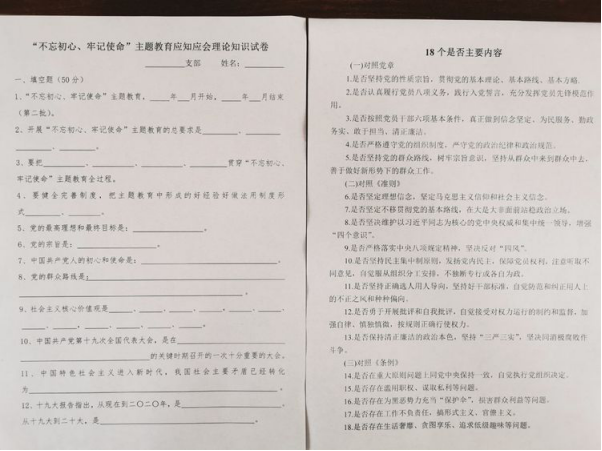 “不忘初心、牢记使命”主题教育应知应会理论知识试卷
________支部 姓名：________
一、填空题（50分）
1、“不忘初心、牢记使命”主题教育，____年__月开始，____年__月结束
（第二批）。
2、开展“不忘初心、牢记使命”主题教育的总要求是________、________
________、________、________。
3、要把________、________、________、________贯穿“不忘初心、
牢记使命”主题教育全过程。
4、要健全完善制度，把主题教育中形成的好经验好做法用制度形
式________、________。
5、党的最高理想和最终目标是：________。
6、党的宗旨是：________。
7、中国共产党人的初心和使命是：________
8、党的群众路线是：________
9、社会主义核心价值观是____、____、____、____、____、
____、____、____、____、____、____、____。
10、中国共产党第十九次全国代表大会，是在________
________的关键时期召开的一次十分重要的大会。
11、中国特色社会主义进入新时代，我国社会主要矛盾已经转化
为________
12、十九大报告指出，从现在到二〇二〇年，是________
从十九大到二十大，是________
18个是否主要内容
(一)对照党章
1.是否坚持党的性质宗旨，贯彻党的基本理论、基本路线、基本方略。
2.是否认真履行党员八项义务，践行入党誓言，充分发挥党员先锋模范作
用。
3.是否按照党员干部六项基本条件，真正做到信念坚定、为民服务、勤政
务实、敢于担当、清正廉洁。
4.是否严格遵守党的组织制度，严守党的政治纪律和政治规范。
5.是否坚持党的群众路线，树牢宗旨意识，坚持从群众中来到群众中去，
善于做好新形势下的群众工作。
(二)对照《准则》
6.是否坚定理想信念，坚定马克思主义信仰和社会主义信念。
7.是否坚定不移贯彻党的基本路线，在大是大非面前站稳政治立场。
8.是否坚决维护以习近平同志为核心的党中央权威和集中统一领导，增强
“四个意识”。
9.是否严格落实中央八项规定精神，坚决反对“四风”。
10.是否坚持民主集中制原则，发扬党内民主，保障党员权利，注意听取不
同意见，自觉服从组织分工安排，不独断专行或各自为政。
11.是否坚持正确选人用人导向，坚持好干部标准，自觉防范和纠正用人上
的不正之风和种种偏向。
12.是否勇于开展批评和自我批评，自觉接受对权力运行的制约和监督，加
强自律、慎独慎微，按规则正确行使权力。
13.是否保持清正廉洁的政治本色，坚持“三严三实”，坚决同消极腐败作
斗争。
(三)对照《条例》
14.是否在重大原则问题上同党中央保持一致，自觉执行党组织决定。
15.是否存在滥用职权、谋取私利等问题。
16.是否存在为黑恶势力充当“保护伞”，损害群众利益等问题。
17.是否存在工作不负责任，搞形式主义、官僚主义。
18.是否存在生活奢靡、贪图享乐、追求低级趣味等问题。